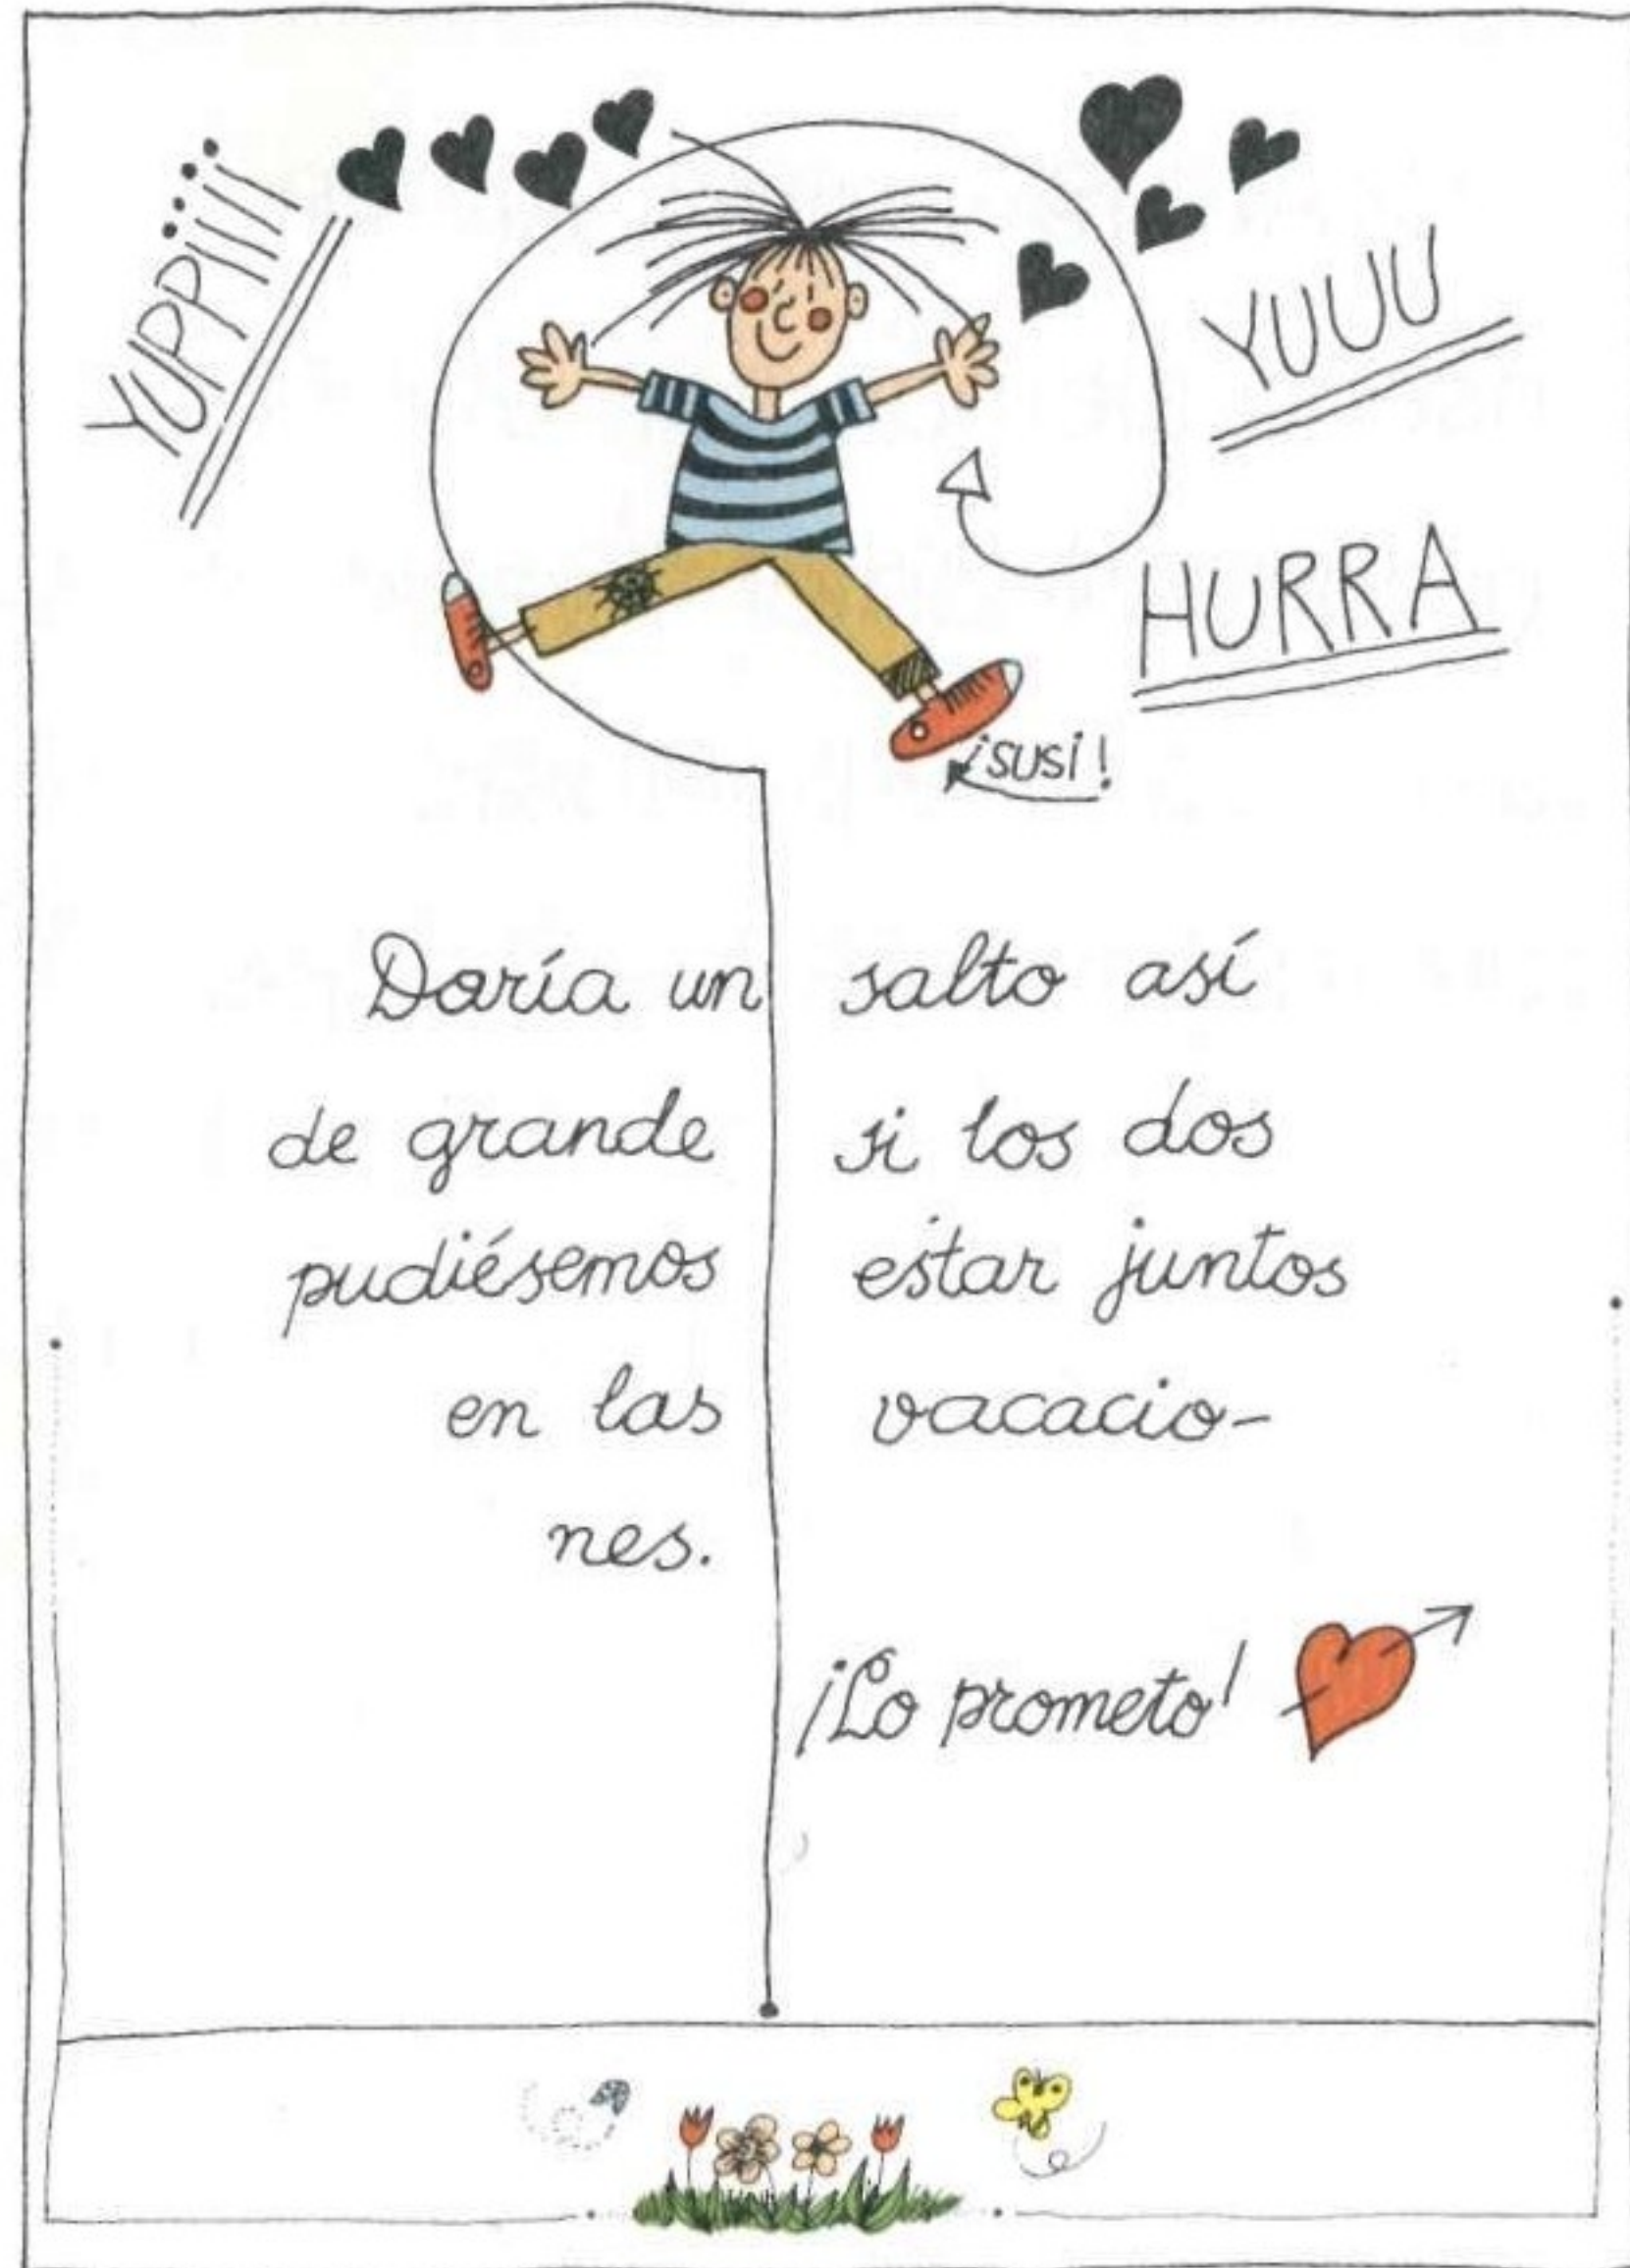 YUPPiiii
YUUU
HURRA
¡SUSi!
Daría un salto así
de grande si los dos
pudiésemos estar juntos
en las vacacio-
nes.
¡Lo prometo!